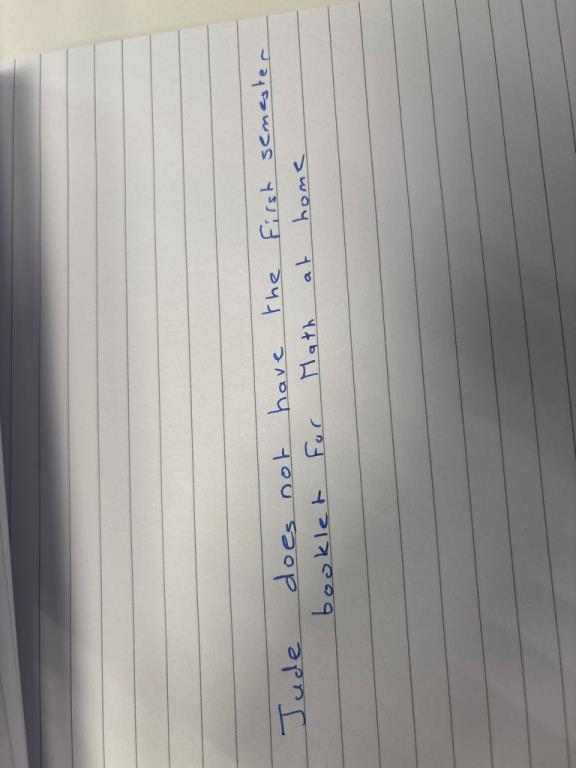 Jude does not have the first semester
booklet for Math at home